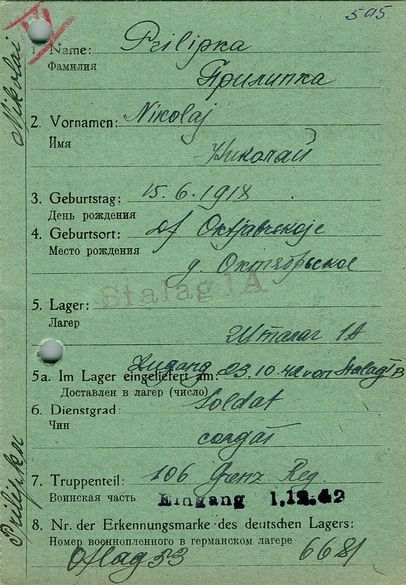 595
1. Name: Prilipka
Фамилия Прилипка
2. Vornamen: Nikolaj
Имя Николай
3. Geburtstag: 15.6.1918
День рождения
4. Geburtsort: Df Oktjabrskoje
Место рождения д. Октябрьское
5. Lager: Stalag 1A
Лагер Шталаг 1А
Zugang 23.10.42 von Stalag B
5a. Im Lager eingeliefert am:
Доставлен в лагер (число)
6. Dienstgrad: Soldat
Чин солдат
7. Truppenteil: 106 Grenz Reg.
Воинская часть Eingang 1.12.42
8. Nr. der Erkennungsmarke des deutschen Lagers:
Номер военнопленного в германском лагере
Oflag 53 6681
Nikolai
Prilipka